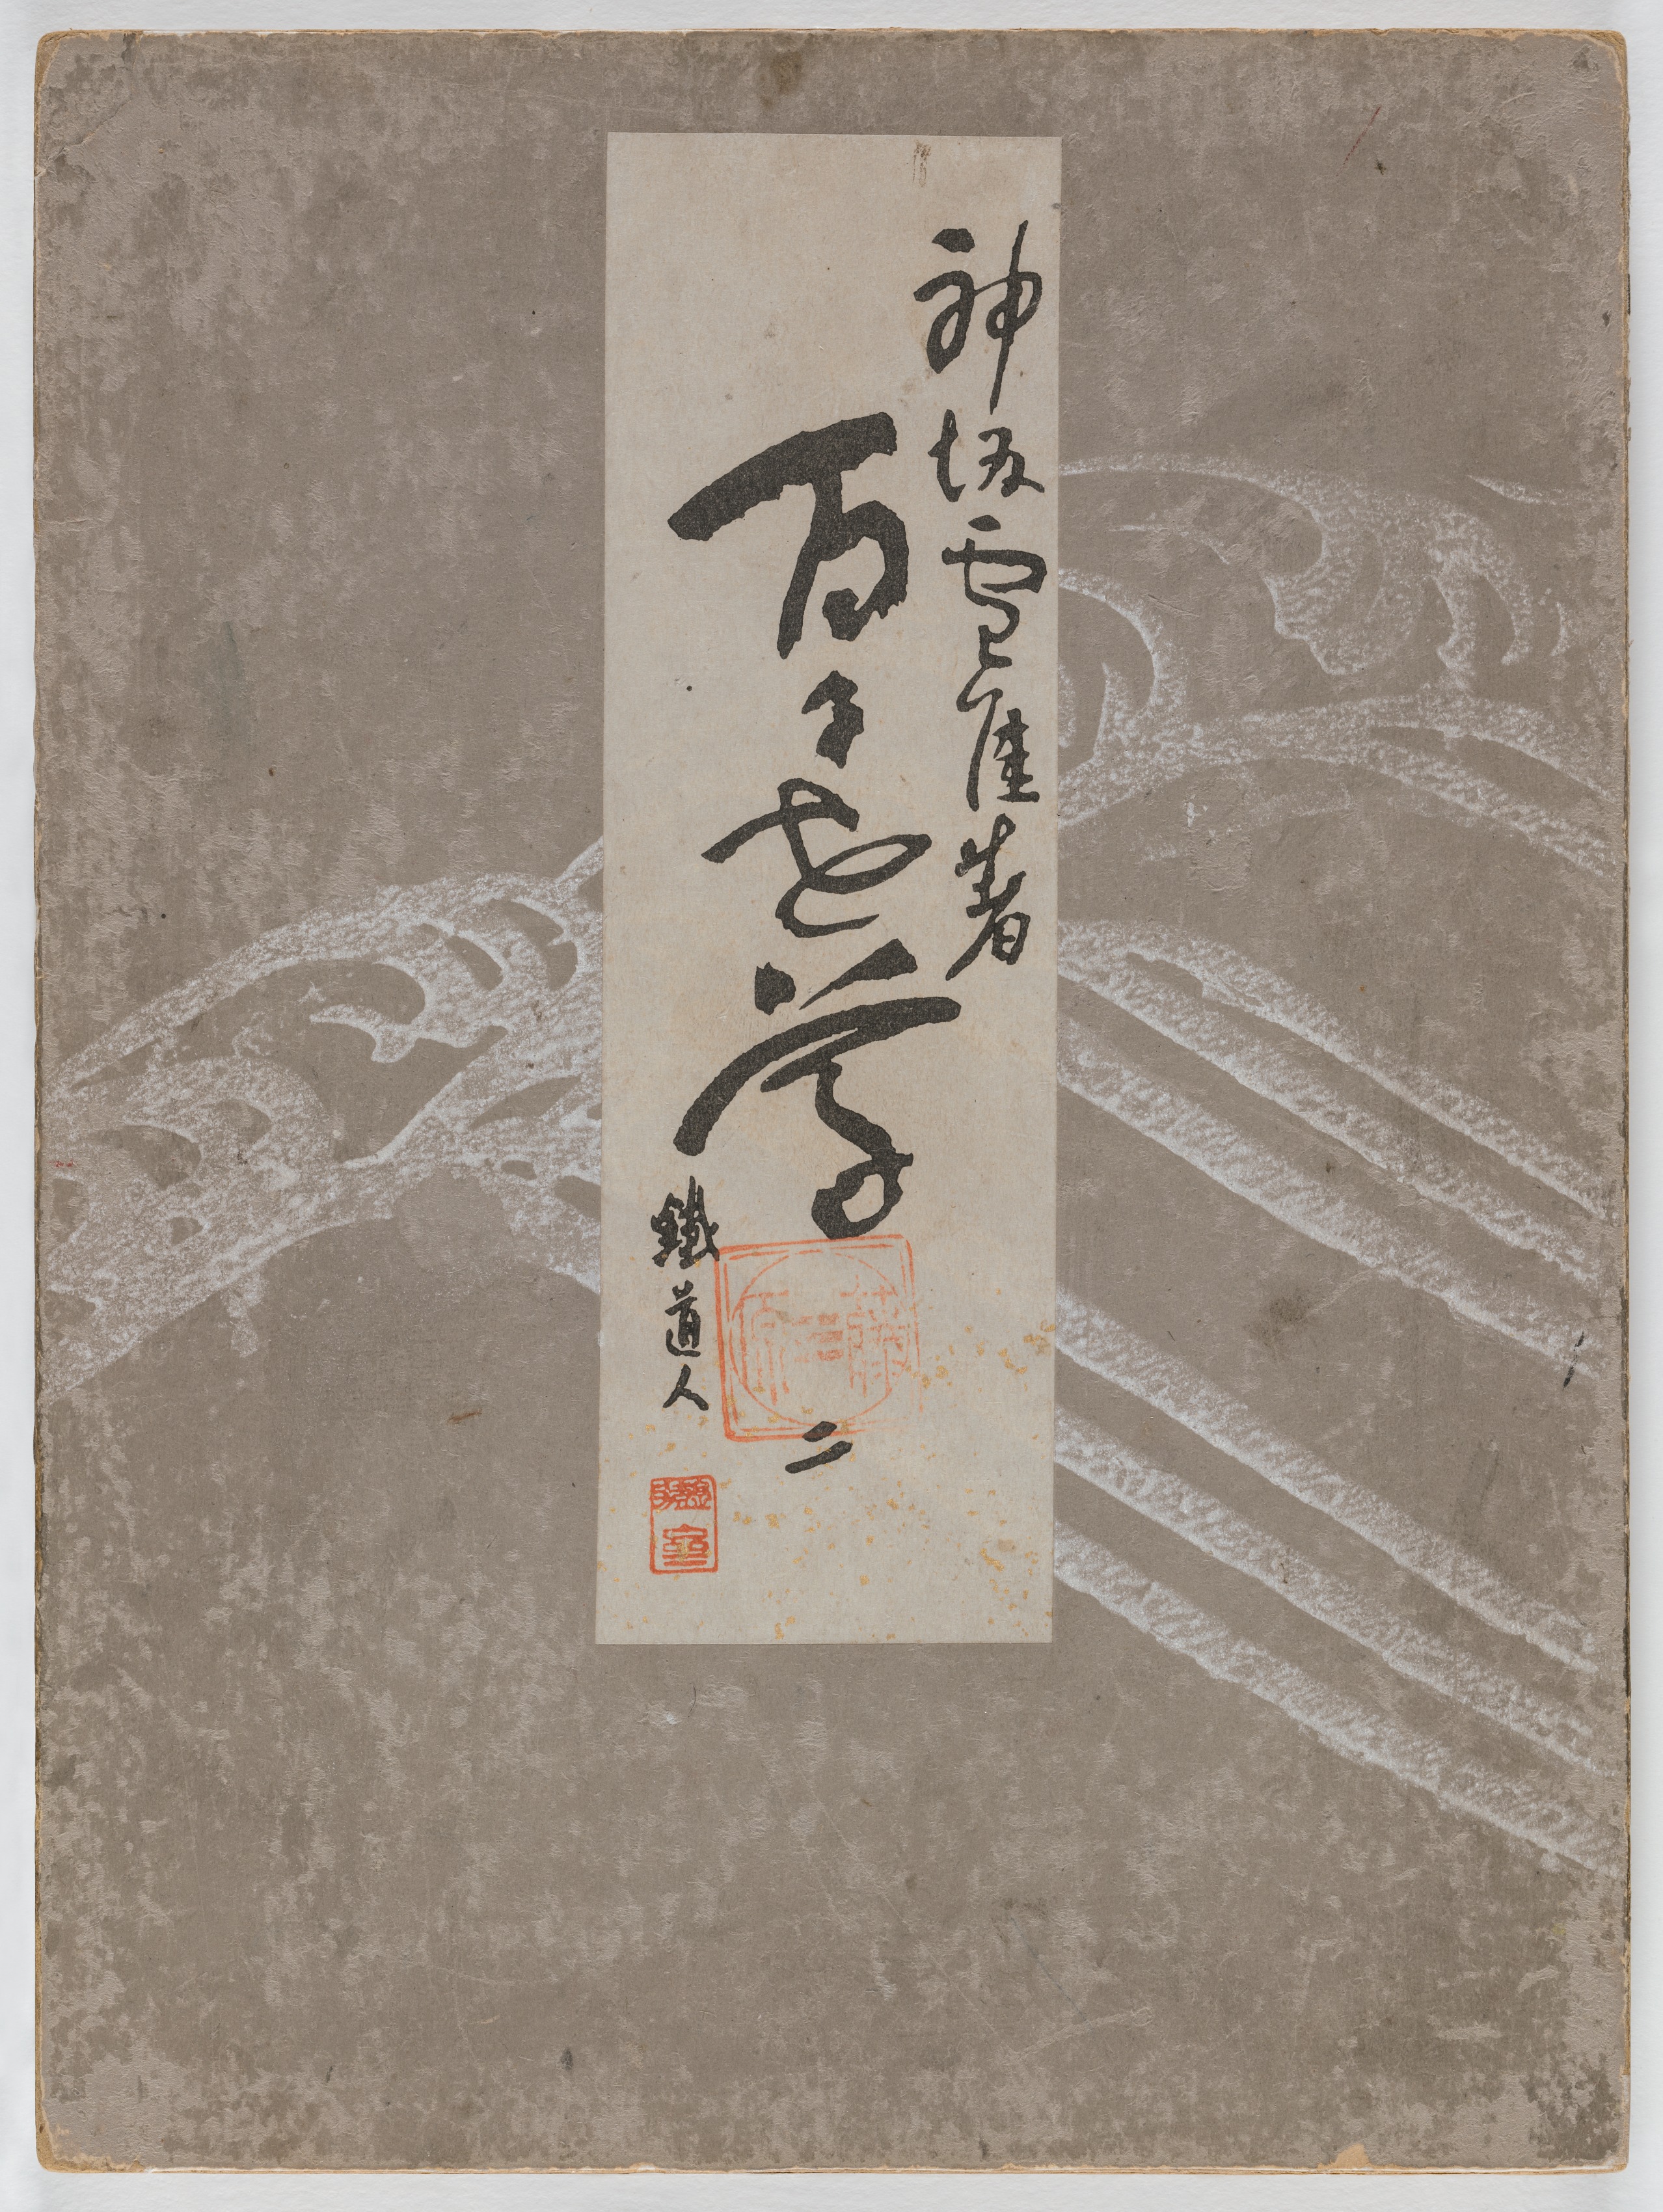 神坂雪佳著
百々世草
二
鐵道人
藤原